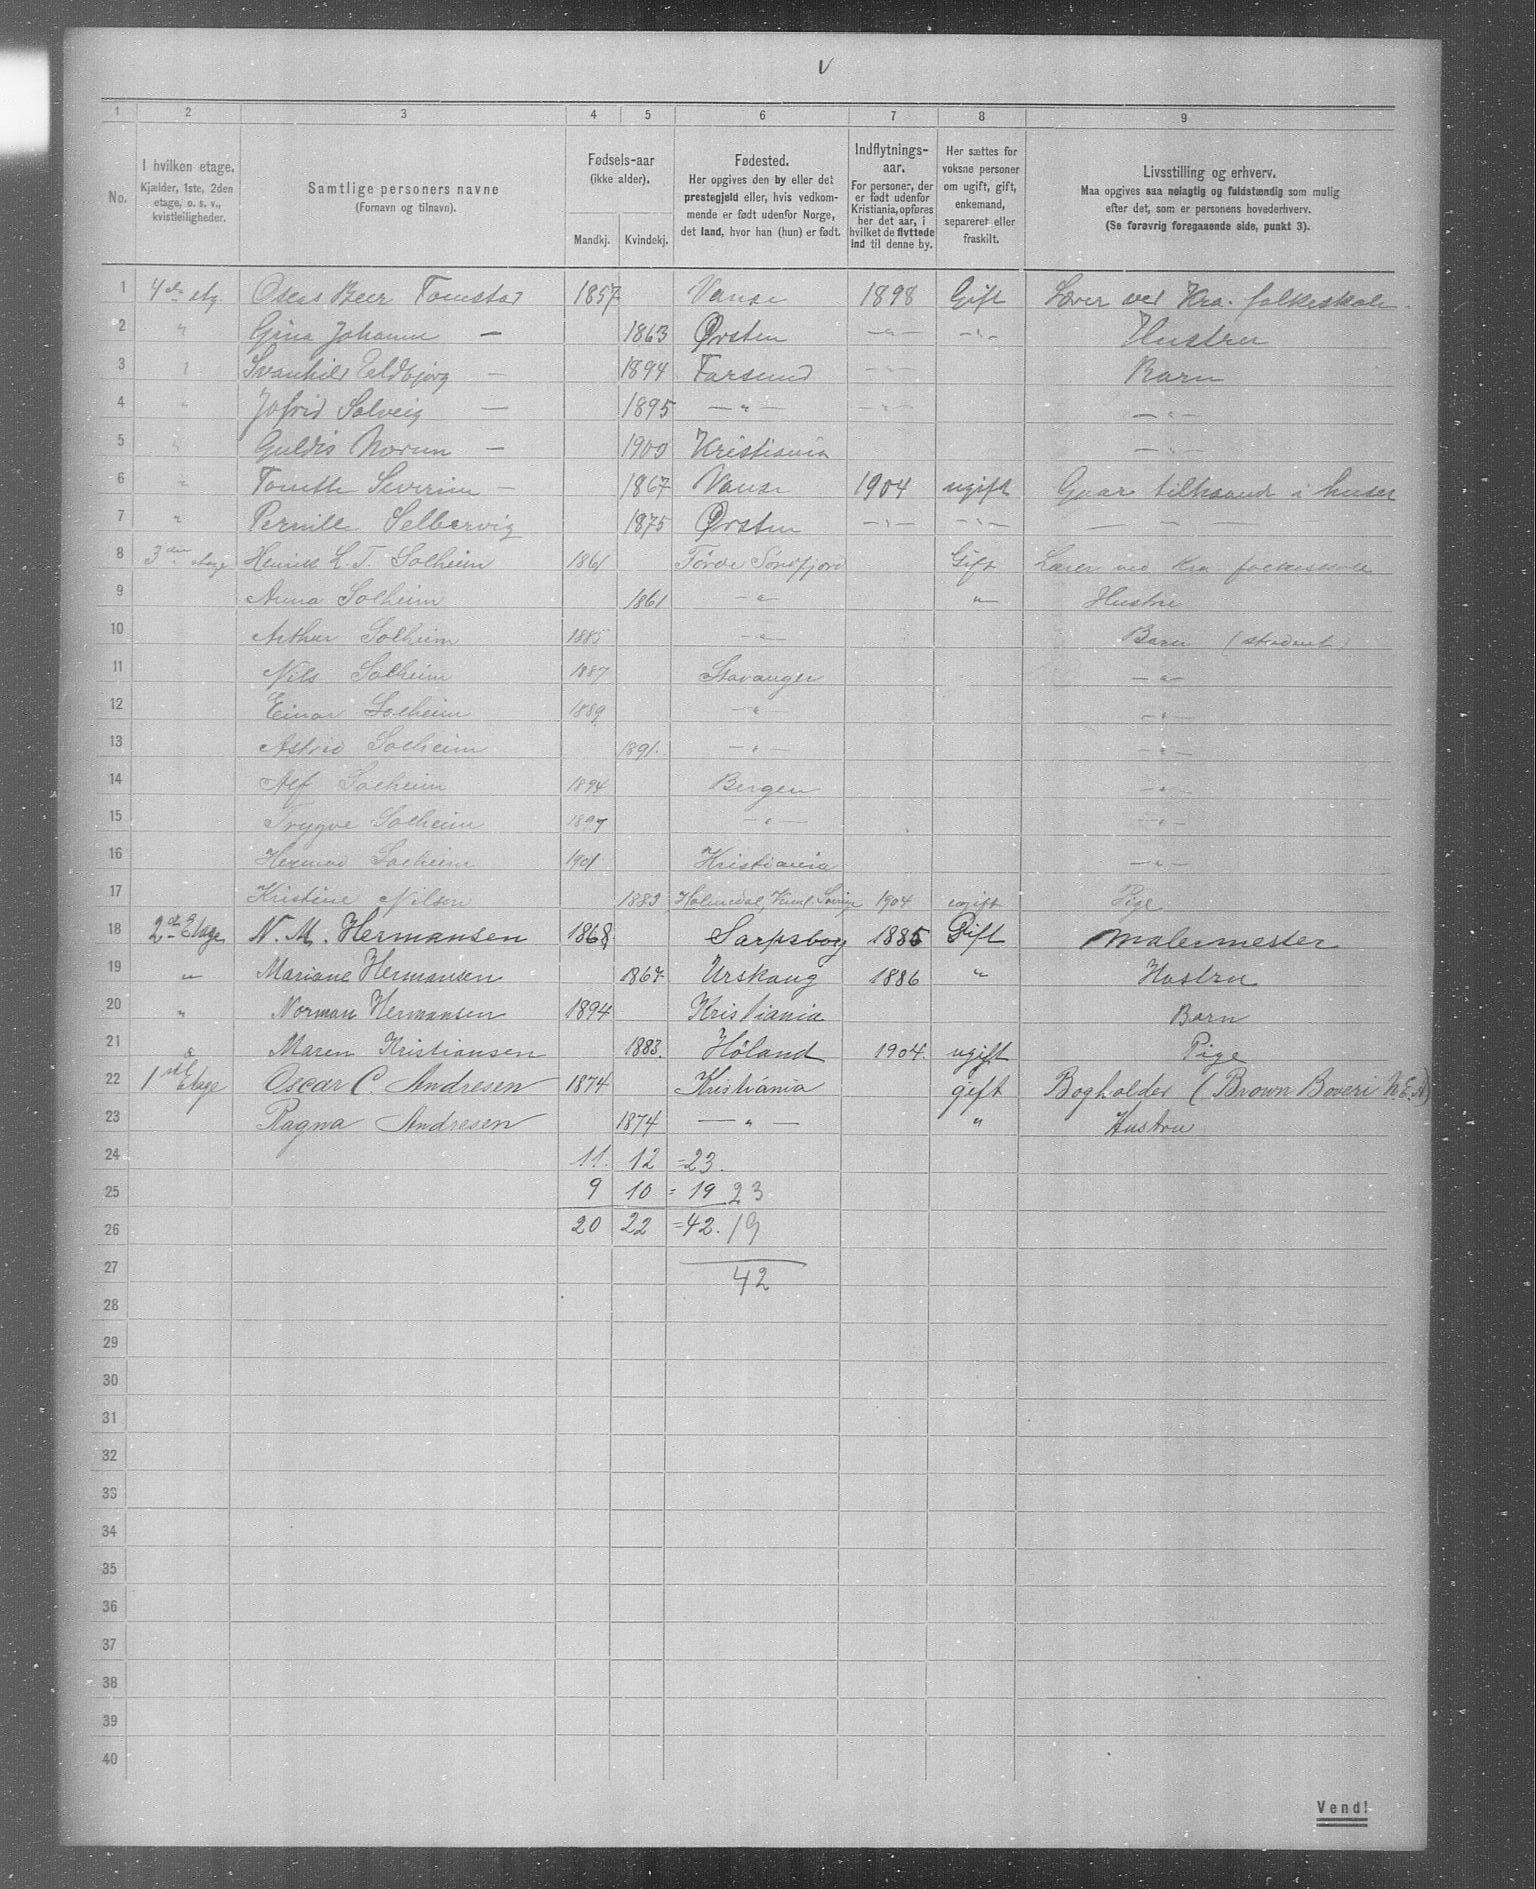 V
1 2 3 4 5 6 7 8 9
No.
I hvilken etage.
Kjælder, 1ste, 2den
etage, o. s. v.,
kvistleiligheder.
Samtlige personers navne
(Fornavn og tilnavn).
Fødsels-aar
(ikke alder).
Mandkj. Kvindekj.
Fødested.
Her opgives den by eller det
prestegjeld eller, hvis vedkom-
mende er født udenfor Norge,
det land, hvor han (hun) er født.
Indflytnings-
aar.
For personer, der
er født udenfor
Kristiania, opføres
her det aar, i
hvilket de flyttede
ind til denne by.
Her sættes for
voksne personer
om ugift, gift,
enkemand,
separeret eller
fraskilt.
Livsstilling og erhverv.
Maa opgives saa nøiagtig og fuldstændig som mulig
efter det, som er personens hovederhverv.
(Se forøvrig foregaaende side, punkt 3).
1 4de etg. Oscar Beer Tomstad 1857 Vanse 1898 Gift Lærer ved Kra. folkeskole.
2 " Gina Johanne — 1863 Ørsten — " — — " — Hustru
3 " Svanhild Eldbjørg — 1894 Farsund — " — Barn
4 " Jofrid Solveig — 1895 — " — — " — — " —
5 " Guldis Norun — 1900 Kristiania — " —
6 " Tomette Severine — 1867 Vanse 1904 ugift Gaar tilhaande i huset
7 " Pernille Selbervig 1875 Ørsten — " — — " — — — —
8 3die etage Henrik L. T. Solheim 1861 Førde Søndfjord Gift Lærer ved Kra folkeskole
9 Anna Solheim 1861 — " — " Hustru
10 Arthur Solheim 1885 — " — Barn (student)
11 Nils Solheim 1887 Stavanger — " —
12 Einar Solheim 1889 — " — — " —
13 Astrid Solheim 1891. — " — — " —
14 Alf Solheim 1894 Bergen — " —
15 Trygve Solheim 1897 — " — — " —
16 Hermod Solheim 1901 Kristiania — " —
17 Kristine Nilsen 1883 Holmedal, 1904 ugift Pige
18 2den Etage N. M. Hermansen 1868 Sarpsborg 1885 Gift Malermester
19 " Mariane Hermansen 1867 Urskoug 1886 " Hustru
20 " Norman Hermansen 1894 Kristiania Barn
21 " Maren Kristiansen 1883. Høland 1904. ugift Pige
22 1ste Etage Oscar C. Andresen 1874 Kristiania gift Bogholder (Brown Boveri N.E.A)
23 Ragna Andresen 1874 — " — " Hustru
24 11. 12 =23.
25 9 10 = 19 23
26 20 22 =42. 19
27 42
28
29
30
31
32
33
34
35
36
37
38
39
40
Vend!